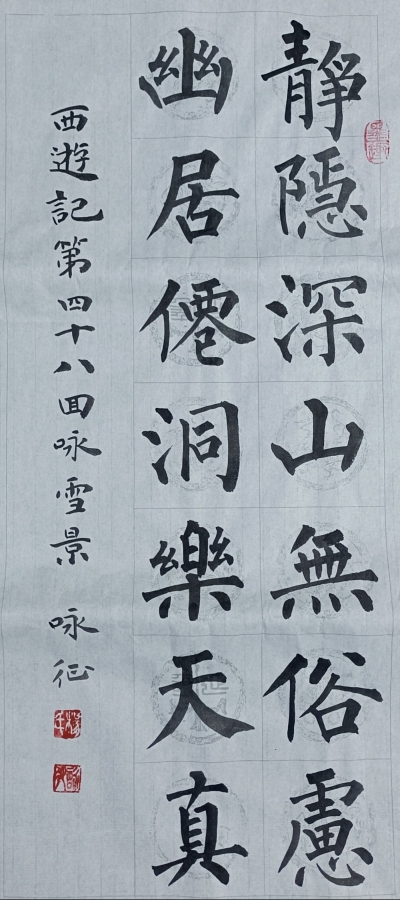 靜隱深山無俗慮
幽居僊洞樂天真
西遊記第四十八回咏雪景 咏征